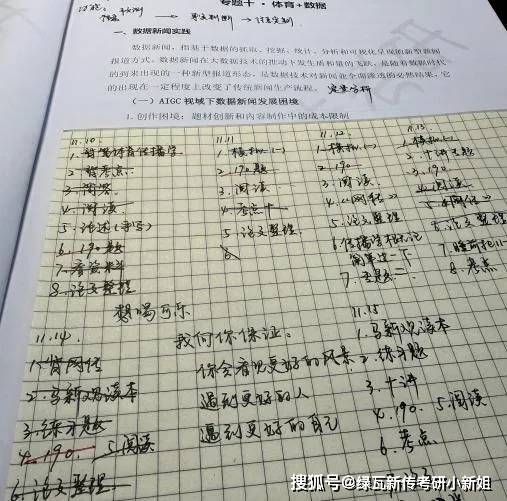 专题十·体育+数据
一、数据新闻实践
数据新闻，指基于数据的抓取、挖掘、统计、分析和可视化呈现的新型新闻
报道方式。数据新闻在大数据技术的推动下发生质和量的飞跃，是随着数据时代
的到来出现的一种新型报道形态，是数据技术对新闻业全面渗透的必然结果，它
的出现在一定程度上改变了传统新闻生产流程。
（一）AIGC视域下数据新闻发展困境
1.创作困境：题材创新和内容制作中的成本限制
11.10
2.背考点
4.阅读
5.论述(手写)
6.190题
8.论文整理
11.11
1.模拟(一)
2.190题
3.阅读
4.考点十
5.论文整理
6
11.12
1.模拟(一)
2.190
3.阅读
4.《网络》
5.论文整理
7.专题二
11.13
1.模拟(一)
2.十讲专题
3.190
4.阅读
8.考点
想喝可乐
11.14
1.背网络
2.马新观读本
3.练习题
4.190
5.阅读
6.论文整理
我向你保证：
你会看见更好的风景
遇到更好的人
遇到更好的自己
11.15
1.马新观读本
2.练习题
3.十讲
4.190.
5.阅读
6.考点
搜狐号@绿瓦新传考研小新姐